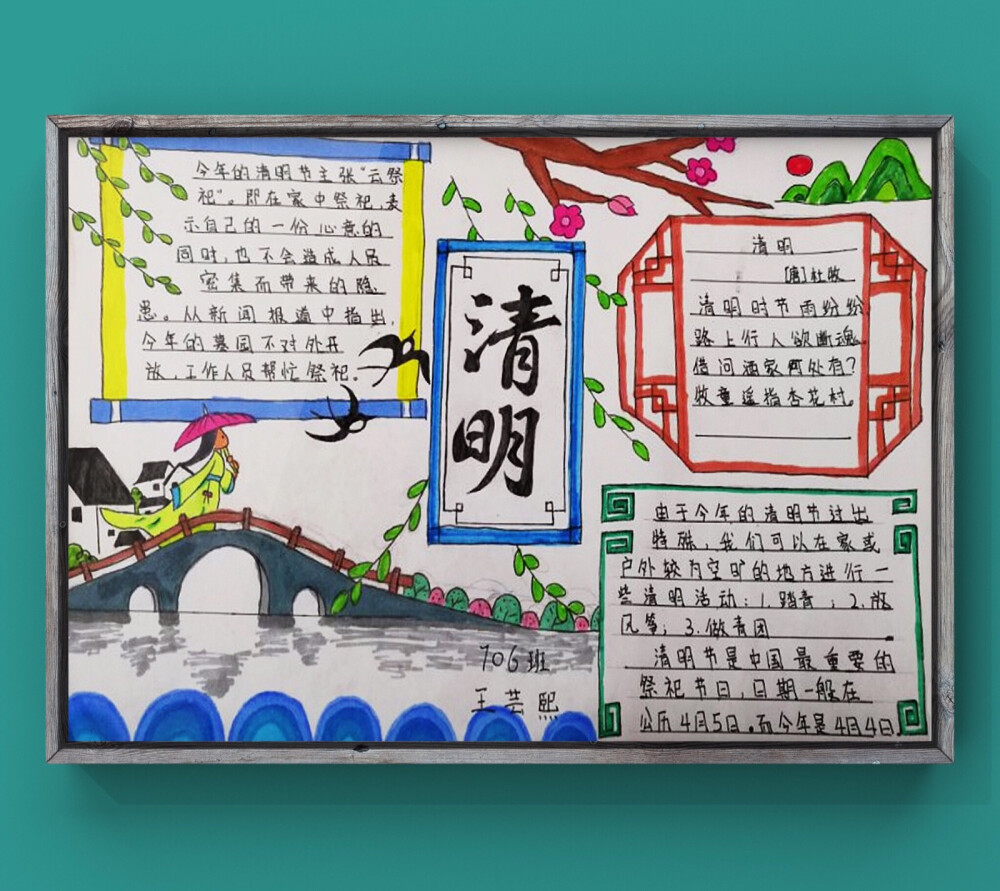 今年的清明节主张"云祭
祀"。即在家中祭祀,表
示自己的一份心意的
同时,也不会造成人员
密集而带来的隐
患。从新闻报道中指出,
今年的墓园不对外开
放,工作人员帮忙祭祀.
清明
清明
[唐]杜牧
清明时节雨纷纷,
路上行人欲断魂。
借问酒家何处有?
牧童遥指杏花村。
由于今年的清明节过出
特殊,我们可以在家或
户外较为空旷的地方进行一
些清明活动:1.踏青;2.放
风筝;3.做青团
清明节是中国最重要的
祭祀节日,日期一般在
公历4月5日。而今年是4月4日.
706班
王芸熙